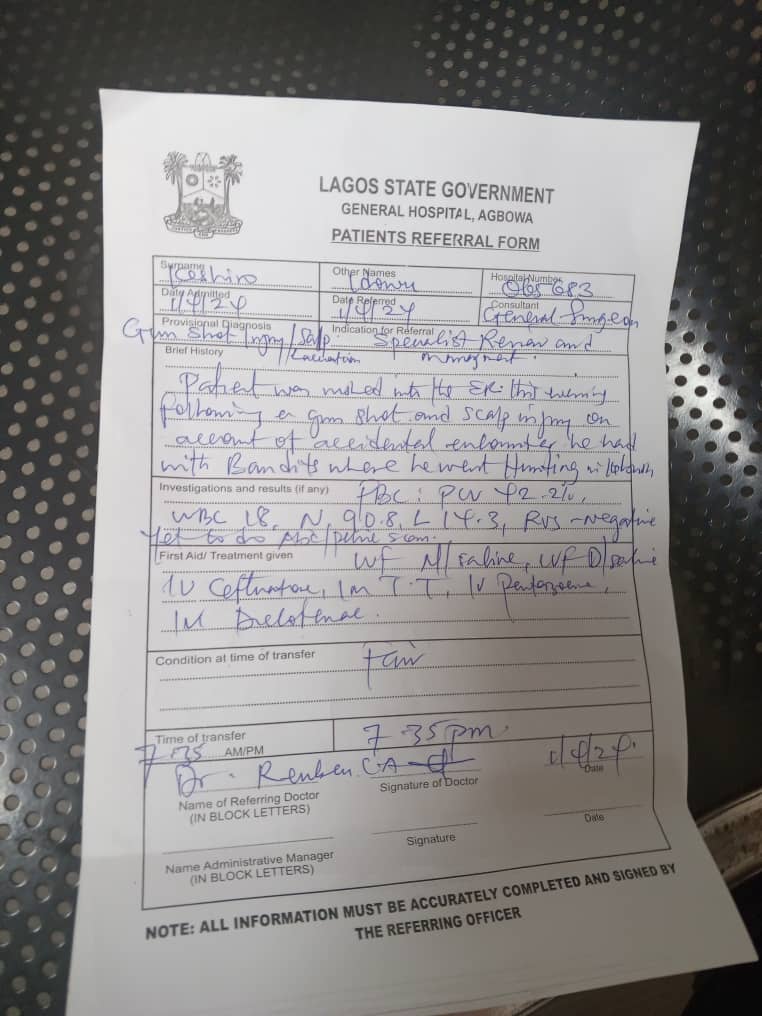 LAGOS STATE GOVERNMENT
GENERAL HOSPITAL, AGBOWA
PATIENTS REFERRAL FORM
Surname Other Names Hospital Number
Keshiro Idowu 065683
Date Admitted Date Referred Consultant
1/4/24 1/4/24 General Surgeon
Provisional Diagnosis Indication for Referral
Gun shot injury/Scalp Specialist Review and
Laceration management.
Brief History
Patient was rushed into the ER this evening
following a gun shot and scalp injury on
account of accidental encounter he had
with Bandits where he went Hunting in
Investigations and results (if any) FBC: PCV 42.2%,
WBC 18, N, 90.8, L 14.3, RVS - Negative
Yet to do Abd/pelvic scan.
First Aid/ Treatment given IVF N/saline, IVF D/saline
IV IM T.T, IV
IM Diclofenac.
Condition at time of transfer Fair
Time of transfer 7.35pm.
7.35 AM/PM
Dr. Reuben 1/4/24.
Name of Referring Doctor Signature of Doctor Date
(IN BLOCK LETTERS)
Name Administrative Manager Signature Date
(IN BLOCK LETTERS)
NOTE: ALL INFORMATION MUST BE ACCURATELY COMPLETED AND SIGNED BY
THE REFERRING OFFICER